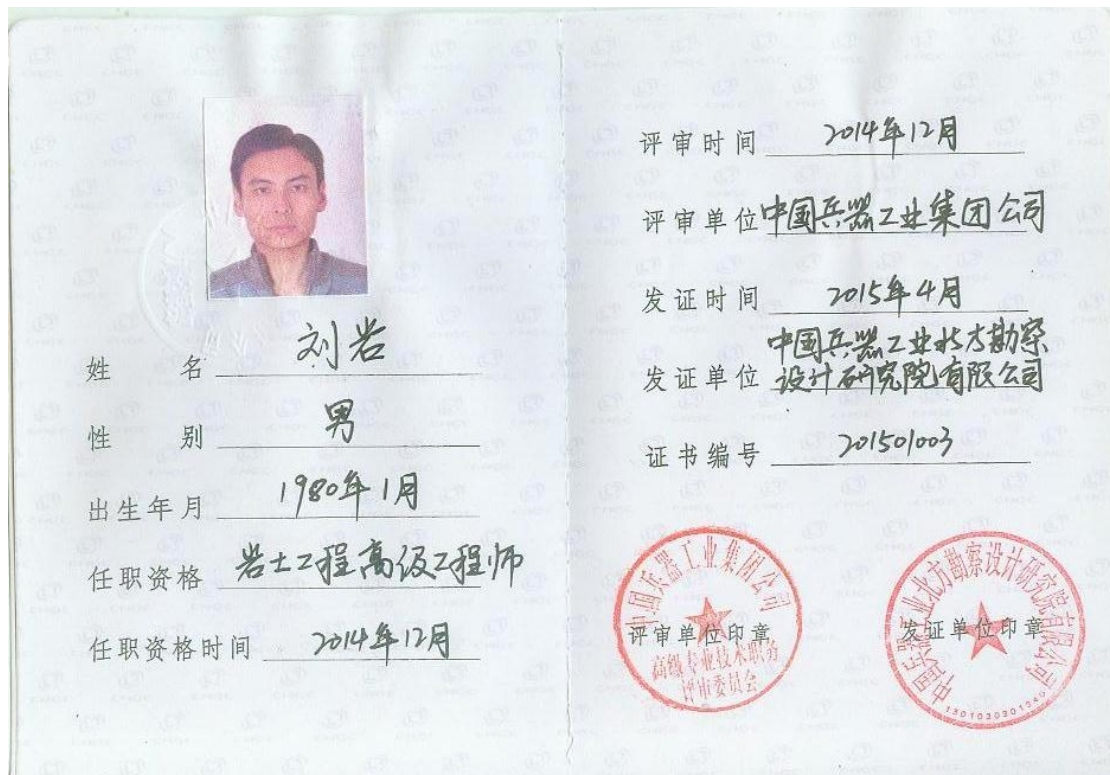 姓 名 刘岩
性 别 男
出生年月 1980年1月
任职资格 岩土工程高级工程师
任职资格时间 2014年12月
评审时间 2014年12月
评审单位 中国兵器工业集团公司
发证时间 2015年4月
中国兵器工业北方勘察
发证单位 设计研究院有限公司
证书编号 201501003
中国兵器工业集团公司
评审单位印章
高级专业技术职务
评审委员会
中国兵器工业北方勘察设计研究院有限公司
发证单位印章